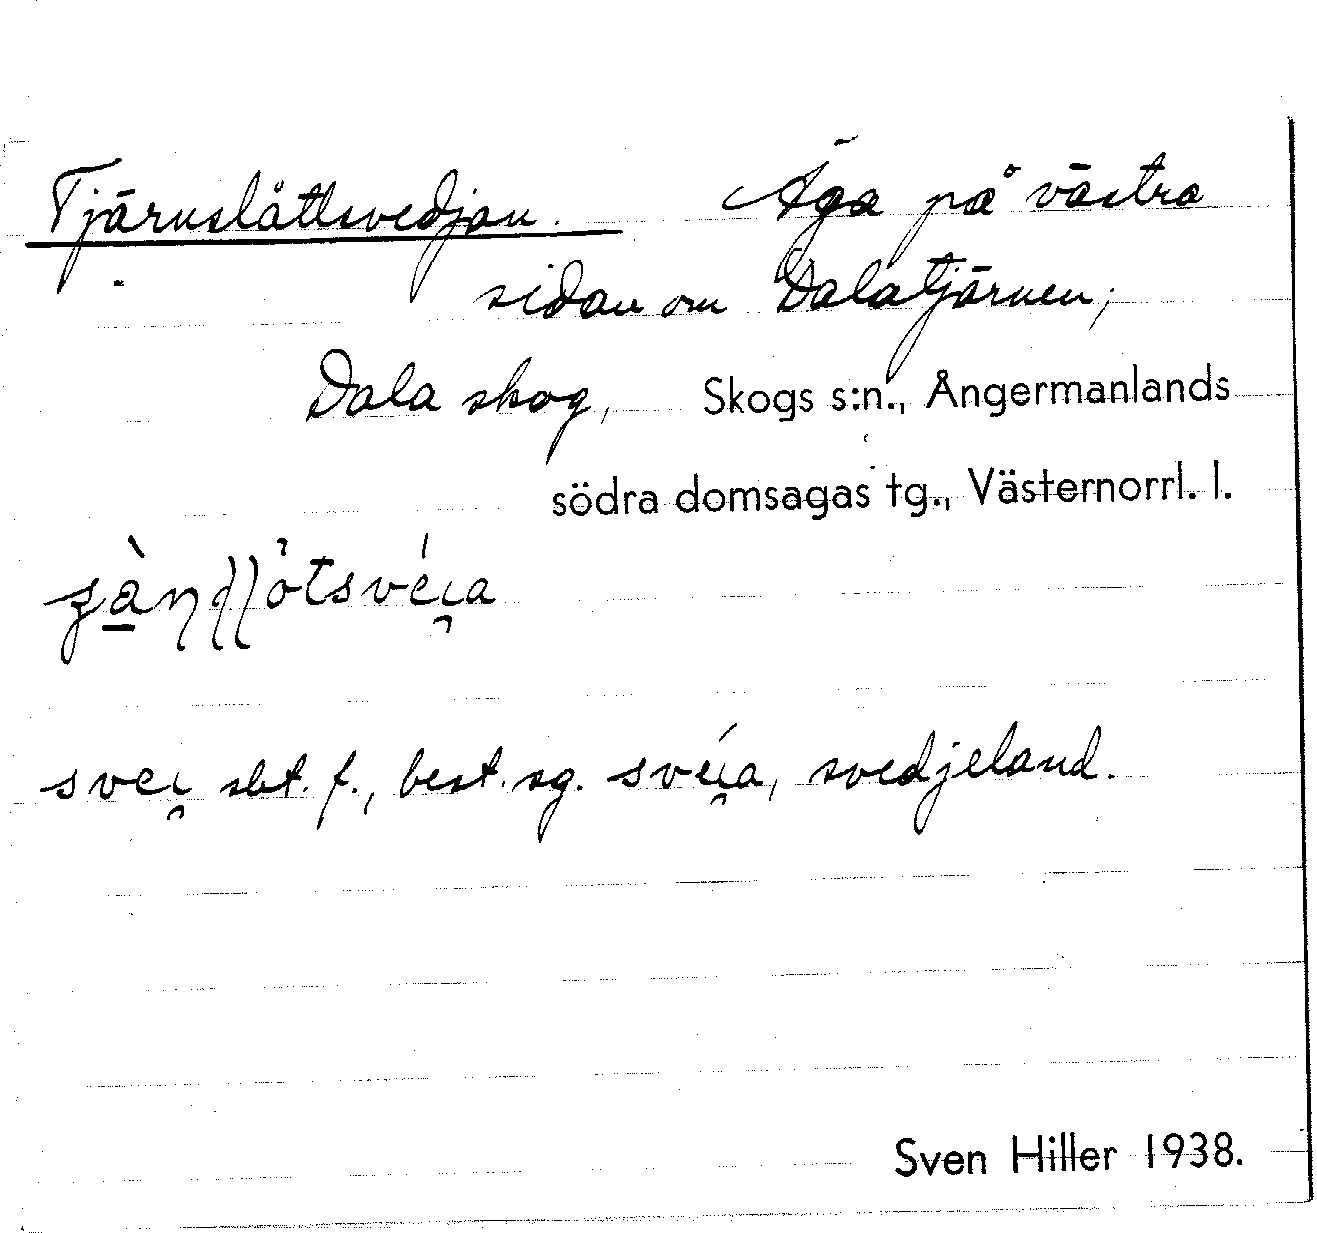 Tjärnslåttsvedjan. Äga på västra
sidan om Dalatjärnen,
Dala skog, Skogs s:n., Ångermanlands
södra domsagas tg., Västernorrl. l.
svei̯ sbt. f., best. sg. svéi̯a, svedjeland.
Sven Hiller 1938.